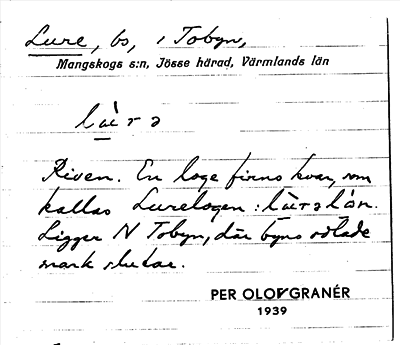 Lure, bs, i Tobyn,
Mangskogs s:n, Jösse härad, Värmlands län
lùrə
Riven. En loge finns kvar, som
kallas Lurelogen : lùrəlón.
Ligger N Tobyn, där byns odlade
mark slutar.
PER OLOF GRANÉR
1939